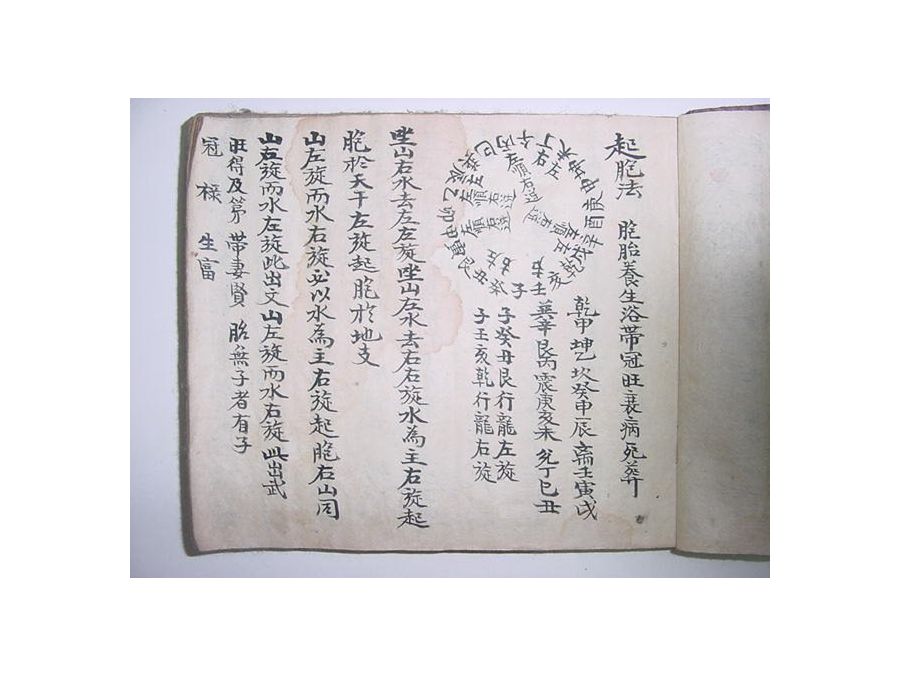 起胞法 胞胎養生浴帶冠旺衰病死葬
乾甲坤乙坎癸申辰离壬寅戌
巽辛艮丙震庚亥未兌丁巳丑
子癸丑艮行龍左旋
子壬亥乾行龍右旋
坐山右水去左左旋坐山左水去右右旋水為主右旋起
胞於天干左旋起胞於地支
山左旋而水右旋必以水為主右旋起胞右山同
山右旋而水左旋此出文山左旋而水右旋此出武
旺得及第 帶妻賢 胎無子者有子
冠 祿 生富
子壬亥乾戌辛酉庚申坤未丁午丙巳巽辰乙卯甲寅艮丑癸